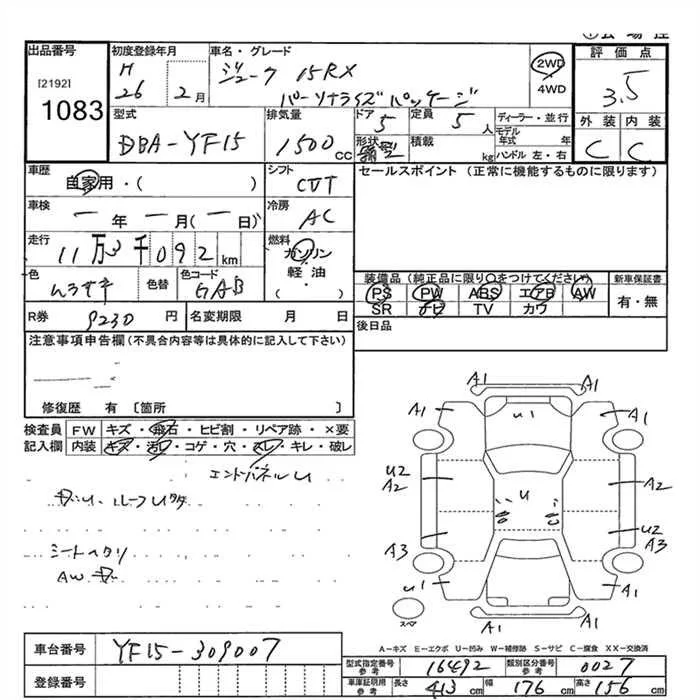 出品番号
[2192]
1083
初度登録年月
H
26 2月
車名・グレード
ジューク 15RX
パーソナライズパッケージ
2WD
4WD
評価点
3.5
外装 内装
C C
型式
DBA-YF15
排気量
1500 CC
ドア 5
形状
定員 5 人
積載 kg
ディーラー・並行
モデル年式 年
ハンドル 左・右
車歴
自家用・( )
シフト
CVT
セールスポイント (正常に機能するものに限ります)
車検
一年 一月(一日)
冷房
AC
走行
11万3千092km
燃料
ガソリン
軽油・
( )
色
ムラサキ
色替
色コード
GAB
装備品 (純正品に限り○をつけてください)
PS PW ABS エアB AW
SR ナビ TV カワ
新車保証書
有・無
R券 9230 円
名変期限 月 日
後日品
注意事項申告欄(不具合内容等は具体的に記入して下さい)
修復歴 有 〔箇所 〕
検査員 FW キズ・飛石・ヒビ割・リペア跡・×要
記入欄 内装 キズ・汚レ・コゲ・穴・スレ・キレ・破レ
エンドパネルU
シートヘタリ
AW
A1 A1
A1 U1 A1
U2
A2 U A2
U2
A3 A3
U1 A1
スペア
A1 A1
A-キズ E-エクボ U-凹み W-補修跡 S-サビ C-腐食 XX-交換済
車台番号 YF15-309007
登録番号
型式指定番号 参考 16492
類別区分番号 参考 0027
車庫証明用 参考 長さ 413 cm 幅 176 cm 高さ 156 cm